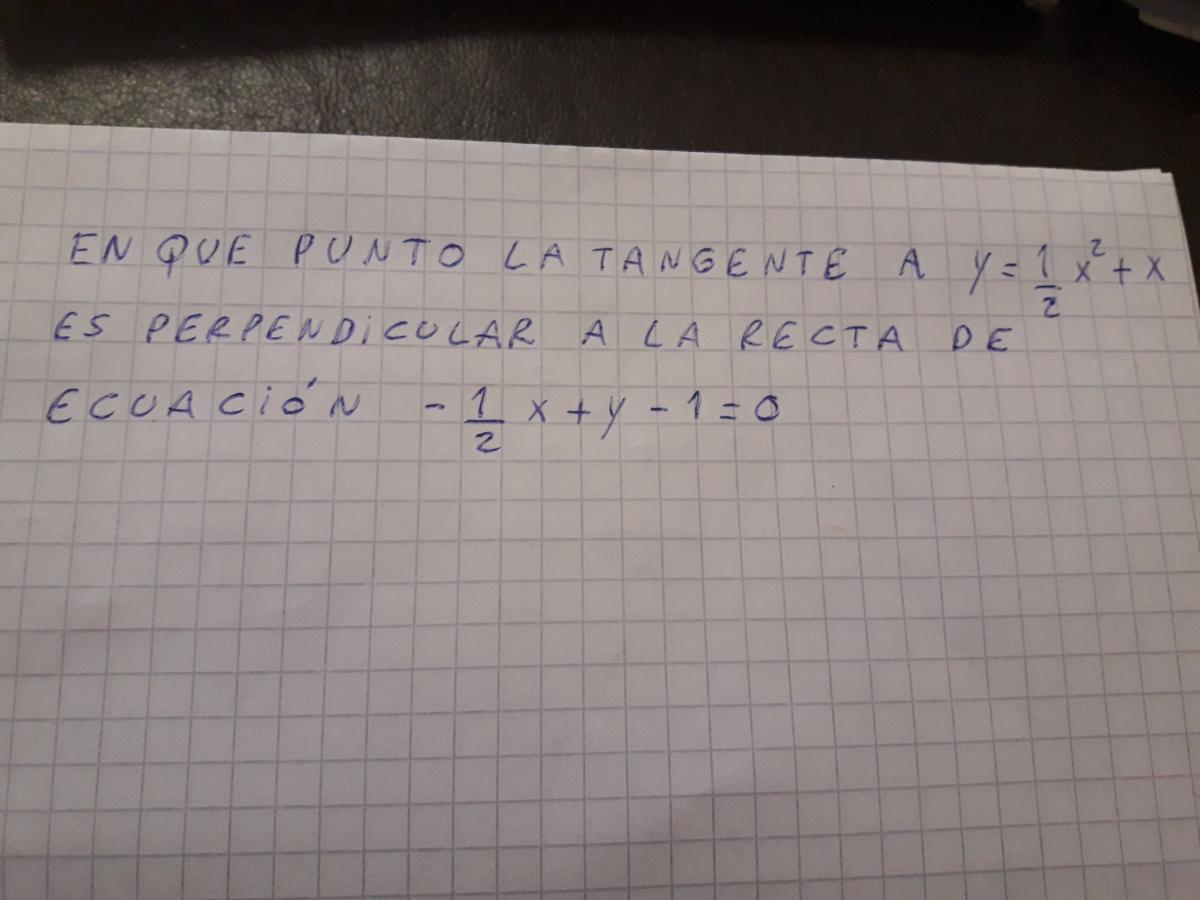 EN QUE PUNTO LA TANGENTE A y = 1/2 x² + x
ES PERPENDICULAR A LA RECTA DE
ECUACIÓN - 1/2 x + y - 1 = 0